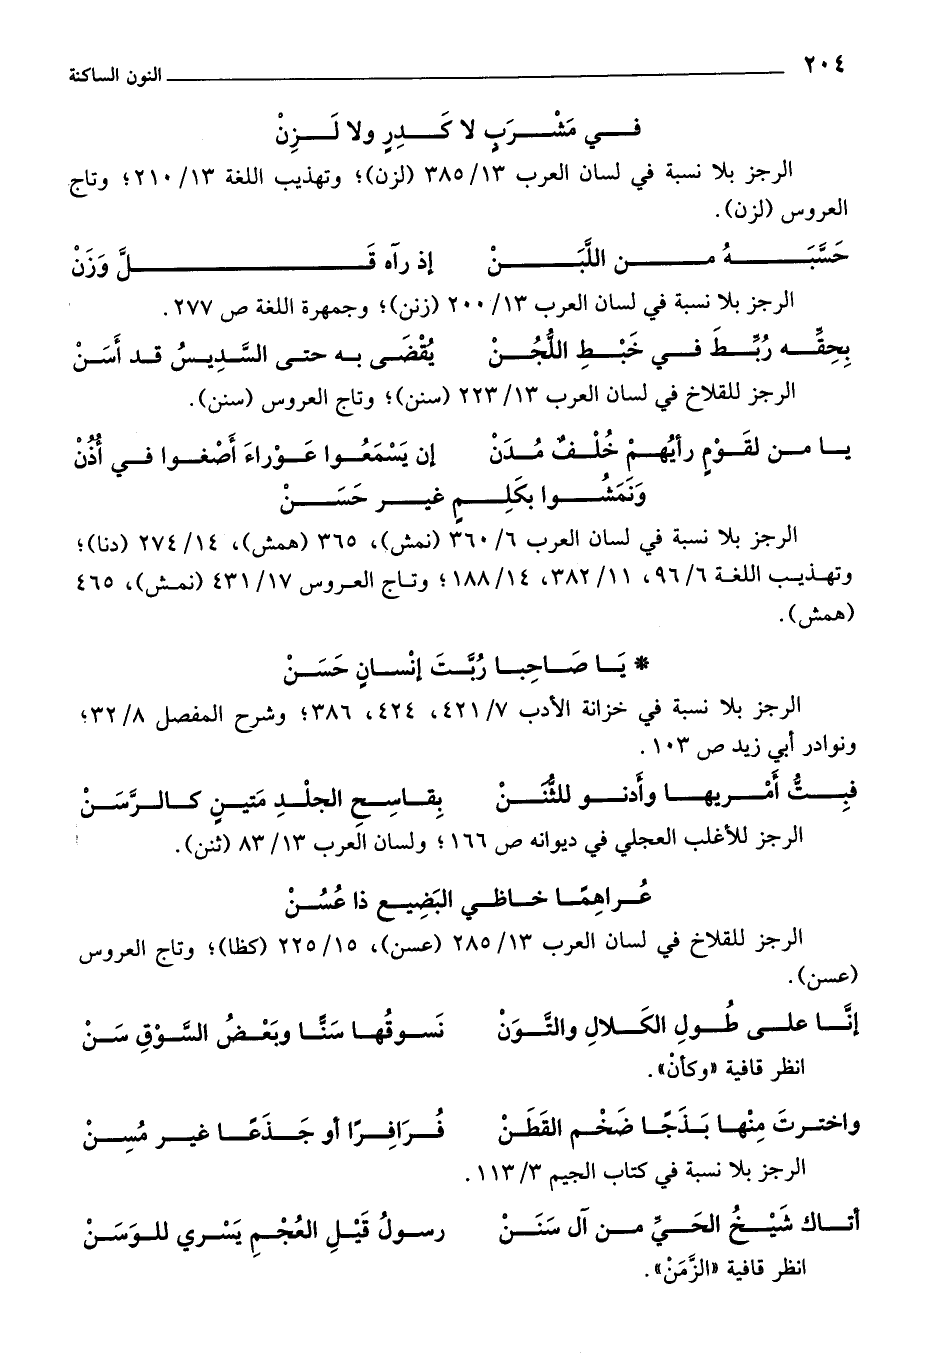 ٢٠٤ النون الساكنة
فـي مَشْـرَبٍ لا كَـدِرٍ ولا لَـزِنْ
الرجز بلا نسبة في لسان العرب ٣٨٥/١٣ (لزن)؛ وتهذيب اللغة ٢١٠/١٣؛ وتاج
العروس (لزن).
حَسَّبَـهُ مـن اللَّبَـنْ إذ رآه قَـلَّ وَزَنْ
الرجز بلا نسبة في لسان العرب ٢٠٠/١٣ (زنن)؛ وجمهرة اللغة ص ٢٧٧.
بِحِقِّـه رُبِّـطَ فـي خَبْـطِ اللُّجُـنْ يُقْضَـى به حتى السَّديسُ قد أَسَنْ
الرجز للقلاخ في لسان العرب ٢٢٣/١٣ (سنن)؛ وتاج العروس (سنن).
يـا مـن لقَـوْمٍ رأيُهـمْ خُلْـفٌ مُـدَنْ إن يَسْمَعُـوا عَـوْراءَ أَصْغـوا فـي أُذُنْ
وَنَمَشُـوا بكَلِـمٍ غيـر حَسَـنْ
الرجز بلا نسبة في لسان العرب ٣٦٠/٦ (نمش)، ٣٦٥ (همش)، ٢٧٤/١٤ (دنا)؛
وتهذيب اللغة ٩٦/٦، ٣٨٢/١١، ١٨٨/١٤؛ وتاج العروس ٤٣١/١٧ (نمش)، ٤٦٥
(همش).
* يَـا صَـاحِبـا رُبَّـتَ إنْسـانٍ حَسَـنْ
الرجز بلا نسبة في خزانة الأدب ٤٢١/٧، ٤٢٤، ٣٨٦؛ وشرح المفصل ٣٢/٨؛
ونوادر أبي زيد ص ١٠٣.
فبِـتُّ أَمْـريهـا وأدنـو للثُّنَـنْ بِقـاسِـحِ الجلْـدِ مَتيـنٍ كـالـرَّسَـنْ
الرجز للأغلب العجلي في ديوانه ص ١٦٦؛ ولسان العرب ٨٣/١٣ (ثنن).
عُـراهِمًـا خـاظـي البَضِيـع ذا عُسُـنْ
الرجز للقلاخ في لسان العرب ٢٨٥/١٣ (عسن)، ٢٢٥/١٥ (كظا)؛ وتاج العروس
(عسن).
إنَّـا علـى طُـولِ الكَـلالِ والتَّـوَنْ نَسـوقُهـا سَنًّـا وبَعْـضُ السَّـوْقِ سَـنْ
انظر قافية «وكأنْ».
واختـرتَ مِنْهـا بَـذَجًـا ضَخْـم القَطَـنْ فُـرَافِـرًا أو جَـذَعًـا غيـر مُسِـنْ
الرجز بلا نسبة في كتاب الجيم ١١٣/٣.
أتـاك شَيْـخُ الحَـيِّ مـن آل سَنَـنْ رسـولُ قَيْـلِ العُجْـمِ يَسْـري للـوَسَـنْ
انظر قافية «الزَّمَنْ».